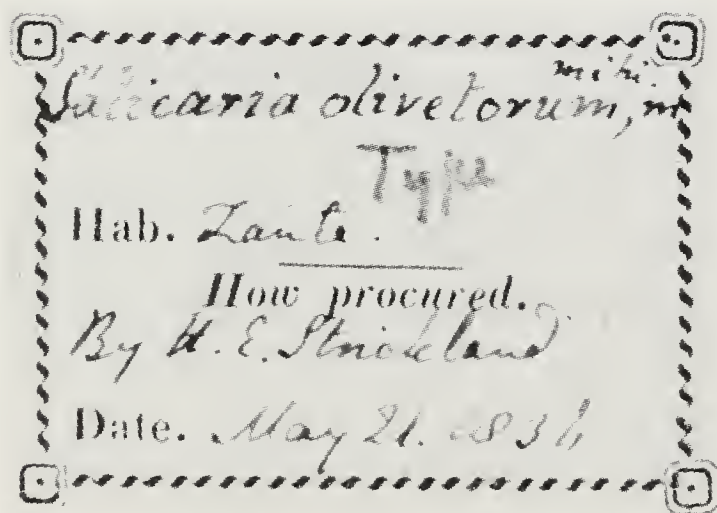 mihi.
Salicaria olivetorum, m
Type
Hab. Zante.
How procured.
By H. E. Strickland
Date. May 21. 1836